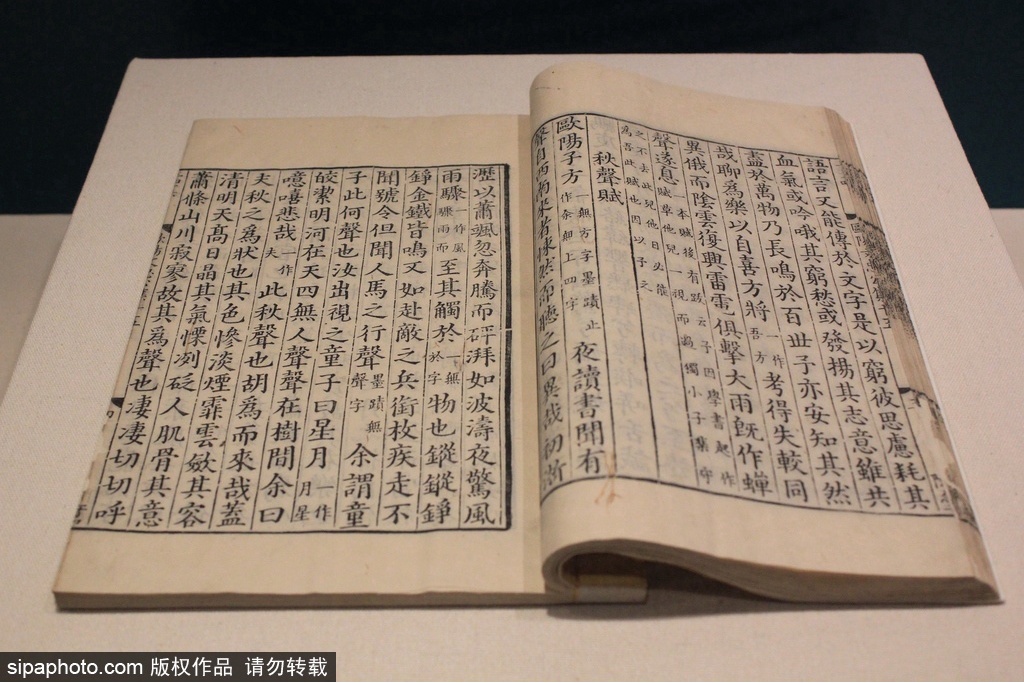 語言又能傳於文字是以窮彼思慮耗其
血氣或吟哦其窮愁或發揚其志意雖共
盡於萬物乃長鳴於百世子亦安知其然
哉聊為樂以自喜方將一作吾方考得失較同
異俄而陰雲復興雷電俱擊大雨旣作蟬
聲遂息一本賦後有跋云予因學書起作賦草他兒一視而過獨小子棐守
之不去此兒他日必能為吾此賦也因以予之
秋聲賦
歐陽子方一無方字墨蹟止作余無上四字夜讀書聞有
聲自西南來者悚然而聽之曰異哉初淅
瀝以蕭颯忽奔騰而砰湃如波濤夜驚風
雨驟一作風驟雨而至其觸於一無於字物也鏦鏦錚
錚金鐵皆鳴又如赴敵之兵銜枚疾走不
聞號令但聞人馬之行聲墨蹟無聲字余謂童
子此何聲也汝出視之童子曰星月一作月星
皎潔明河在天四無人聲聲在樹間余曰
噫嘻悲哉一作夫此秋聲也胡為而來哉蓋
夫秋之為狀也其色慘淡煙霏雲斂其容
清明天高日晶其氣慄冽砭人肌骨其意
蕭條山川寂寥故其為聲也凄凄切切呼
sipaphoto.com 版权作品 请勿转载